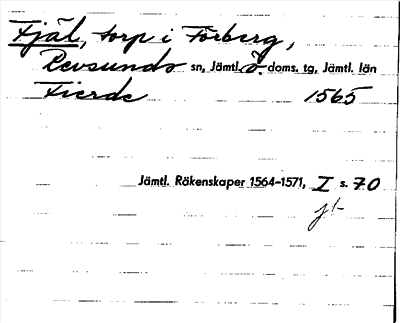 Fjäl, torp i Förberg,
Revsunds sn, Jämtl. ö. doms. tg, Jämtl. län
Fierde 1565
Jämtl. Räkenskaper 1564-1571, I s. 70